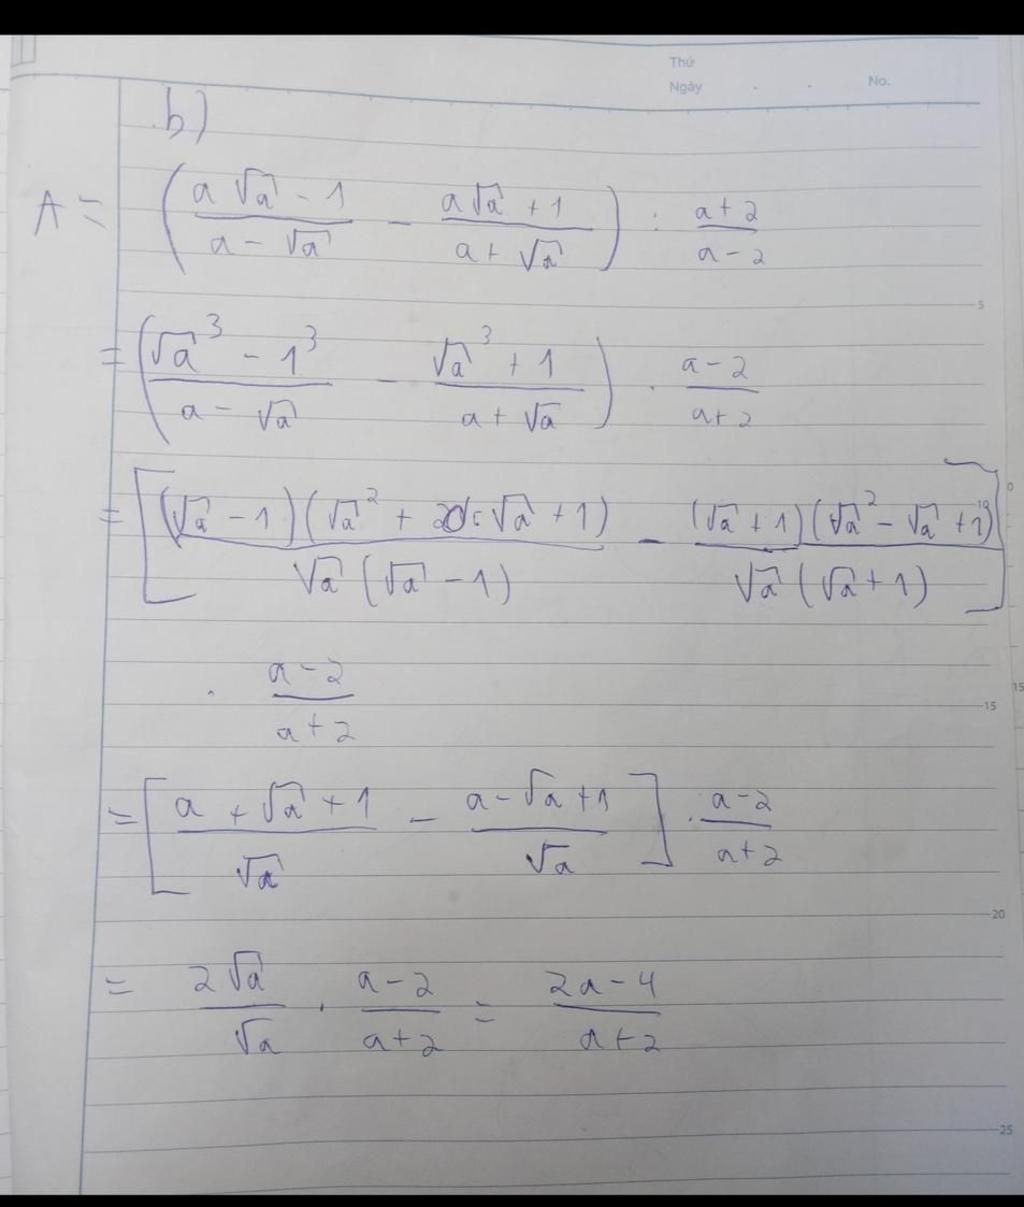 Thứ
Ngày . . No.
b)
A = ( (a√a - 1)/(a - √a) - (a√a + 1)/(a + √a) ) : (a+2)/(a-2)
5
= ( (√a³ - 1³)/(a - √a) - (√a³ + 1)/(a + √a) ) . (a-2)/(a+2)
= [ (√a - 1)(√a² + √a + 1)/(√a(√a - 1)) - (√a + 1)(√a² - √a + 1)/(√a(√a + 1)) ]
. (a-2)/(a+2)
15
= [ (a + √a + 1)/√a - (a - √a + 1)/√a ] . (a-2)/(a+2)
20
= 2√a/√a . (a-2)/(a+2) = (2a-4)/(a+2)
25